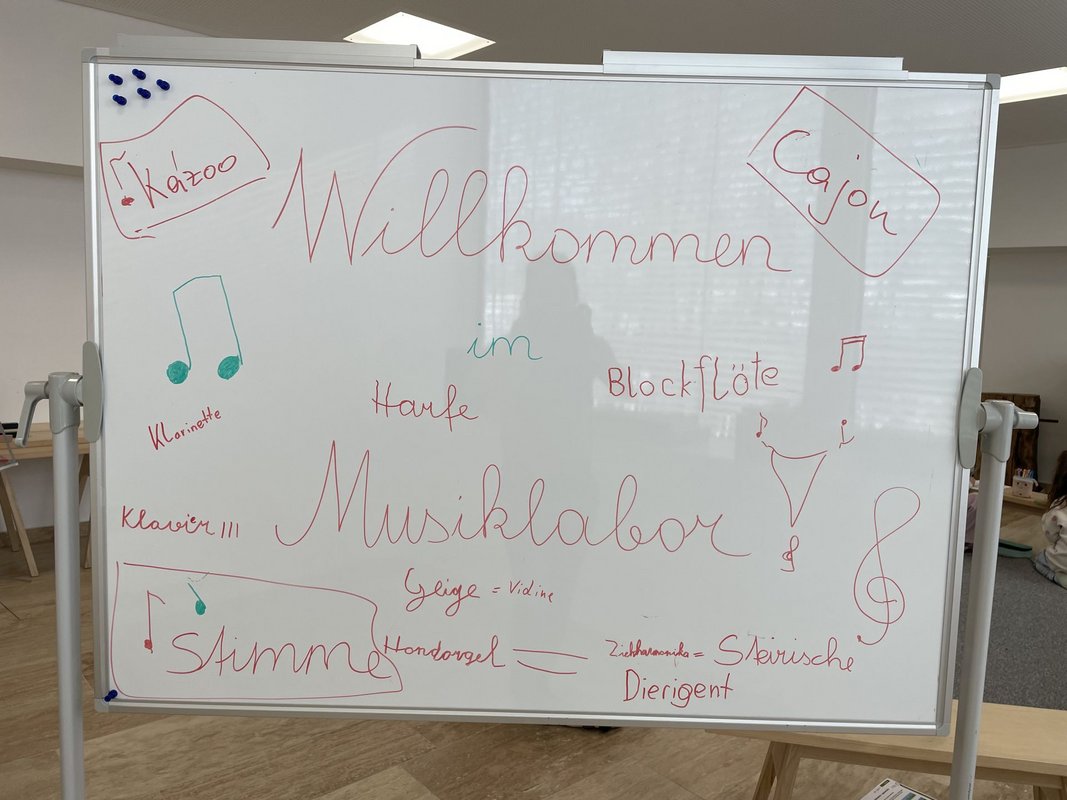 Kázoo
Cajon
Willkommen
im
Harfe
Blockflöte
Klarinette
Musiklabor
Klavier !!!
Geige = Vidine
Stimme
Handorgel = Ziehharmonika = Steirische
Dierigent